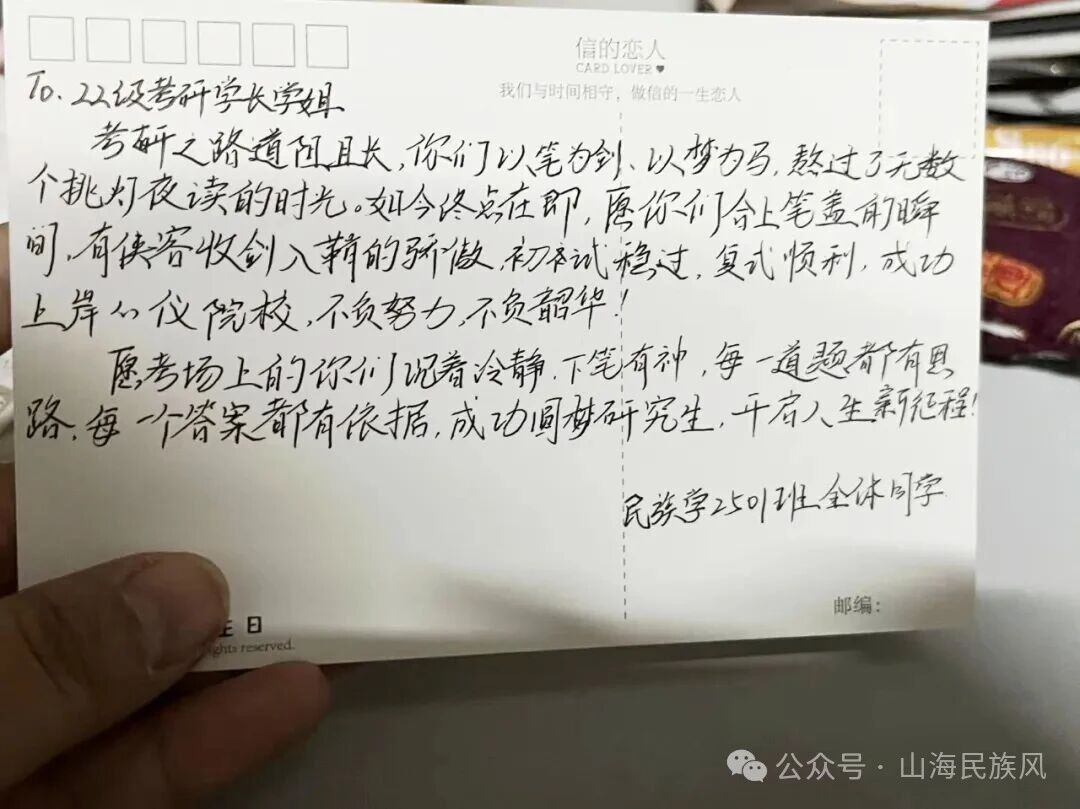 信的恋人
CARD LOVER
我们与时间相守，做信的一生恋人
To. 22级考研学长学姐
考研之路道阻且长，你们以笔为剑、以梦为马，熬过了无数
个挑灯夜读的时光。如今终点在即，愿你们合上笔盖的瞬
间，有侠客收剑入鞘的骄傲，初试稳过，复式顺利，成功
上岸心仪院校，不负努力，不负韶华！
愿考场上的你们沉着冷静，下笔有神，每一道题都有思
路，每一个答案都有依据，成功圆梦研究生，开启人生新征程！
民族学2501班全体同学
邮编：
日
rights reserved.
公众号·山海民族风